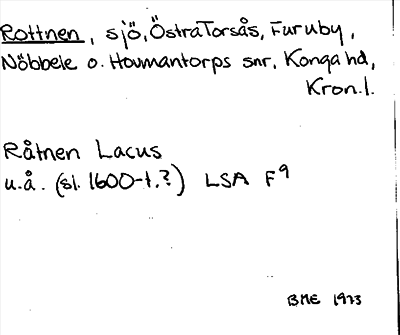 Rottnen, sjö, Östra Torsås, Furuby,
Nöbbele o. Hovmantorps snr, Konga hd,
Kron.l.
Råtnen Lacus
u.å. (sl. 1600-t.?) LSA F9
BME 1973